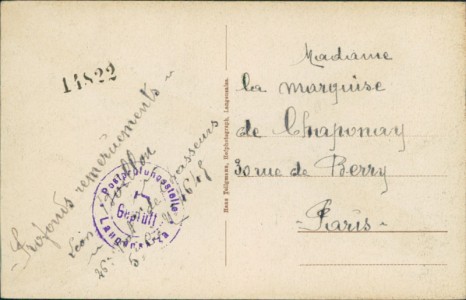 14822
Profonds remerciements
Léon
chasseurs
Postprüfungsstelle
Geprüft
Langensalza
Hans Tellgmann, Hofphotograph, Langensalza.
Madame
la marquise
de Chaponay
30 rue de Berry
Paris